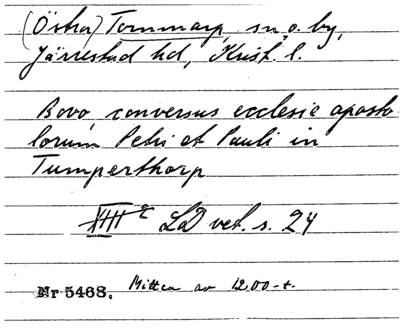 (Östra) Tommarp, sn o. by,
Järrestad hd, Krist. l.
Bovo, conversus ecclesie aposto-
lorum Petri et Pauli in
Tumperthorp
XIIII c LD vet. s. 24
Nr 5468. Mitten av 1200-t.